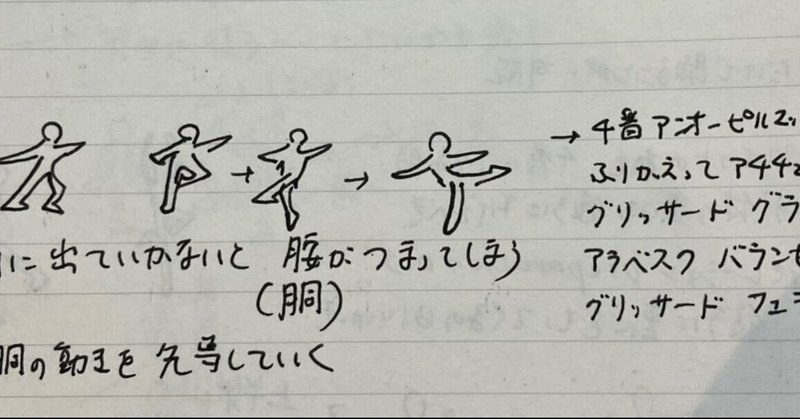 → 4番 アンオーピルエ
ふりかえって アチチュ
グリッサード グラ
アラベスク バランセ
グリッサード フェ
に 出ていかないと 腰がつまってしまう
(胴)
胴の動きを 先導していく